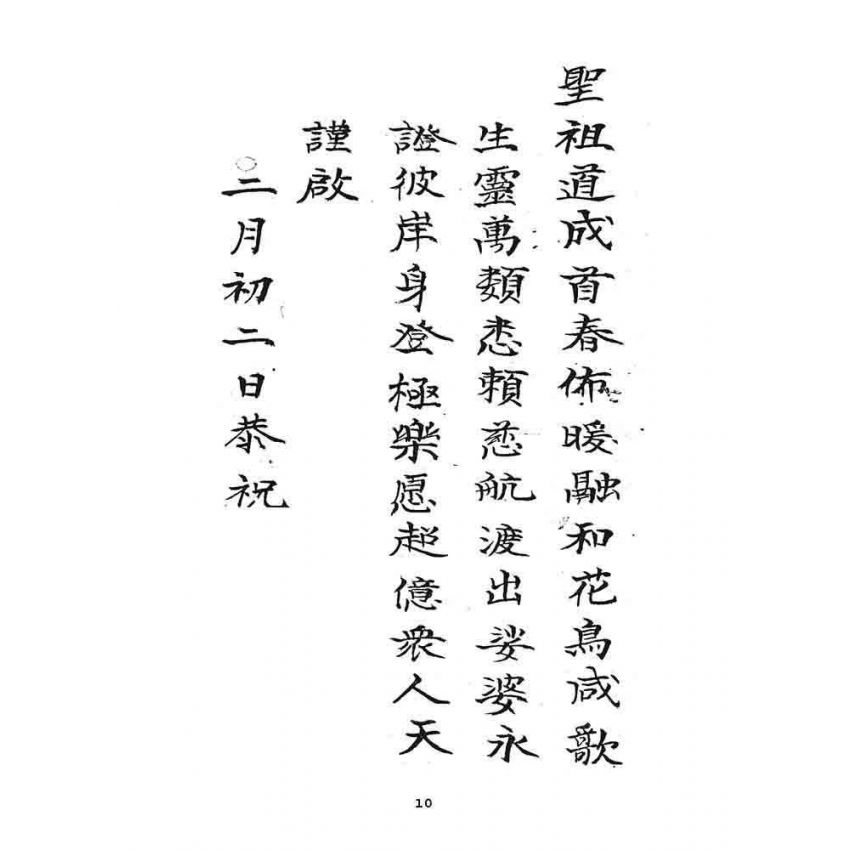 聖祖道成首春佈暖融和花鳥咸歌
生靈萬類悉賴慈航渡出娑婆永
證彼岸身登極樂愿超億衆人天
謹啟
二月初二日恭祝
10